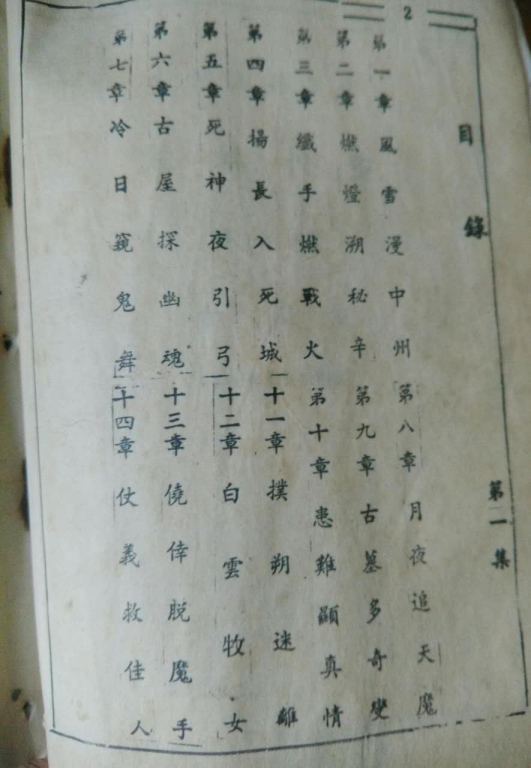 2
目錄
第一章風雪漫中州
第二章燃燈溯秘辛
第三章纖手燃戰火
第四章揚長入死城
第五章死神夜引弓
第六章古屋探幽魂
第七章冷日窺鬼舞
第二集
第八章月夜追天魔
第九章古墓多奇變
第十章患難顯真情
十一章撲朔迷離
十二章白雲牧女
十三章僥倖脱魔手
十四章仗義救佳人